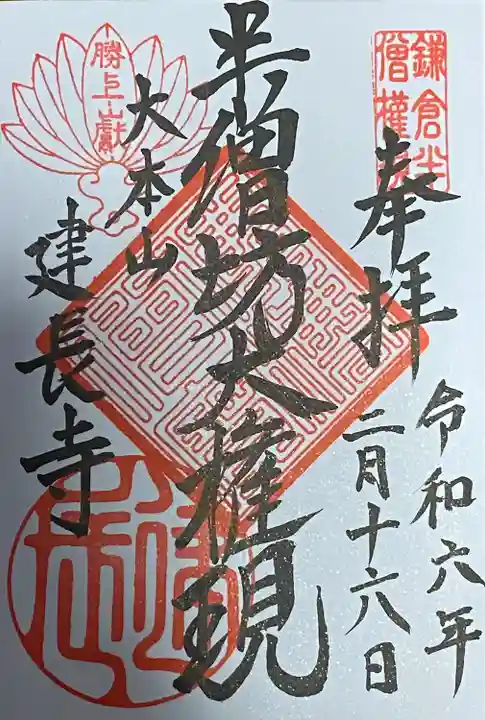 奉拝
令和六年
二月十六日
半僧坊大権現
大本山
建長寺
鎌倉半
僧權現
勝上山献